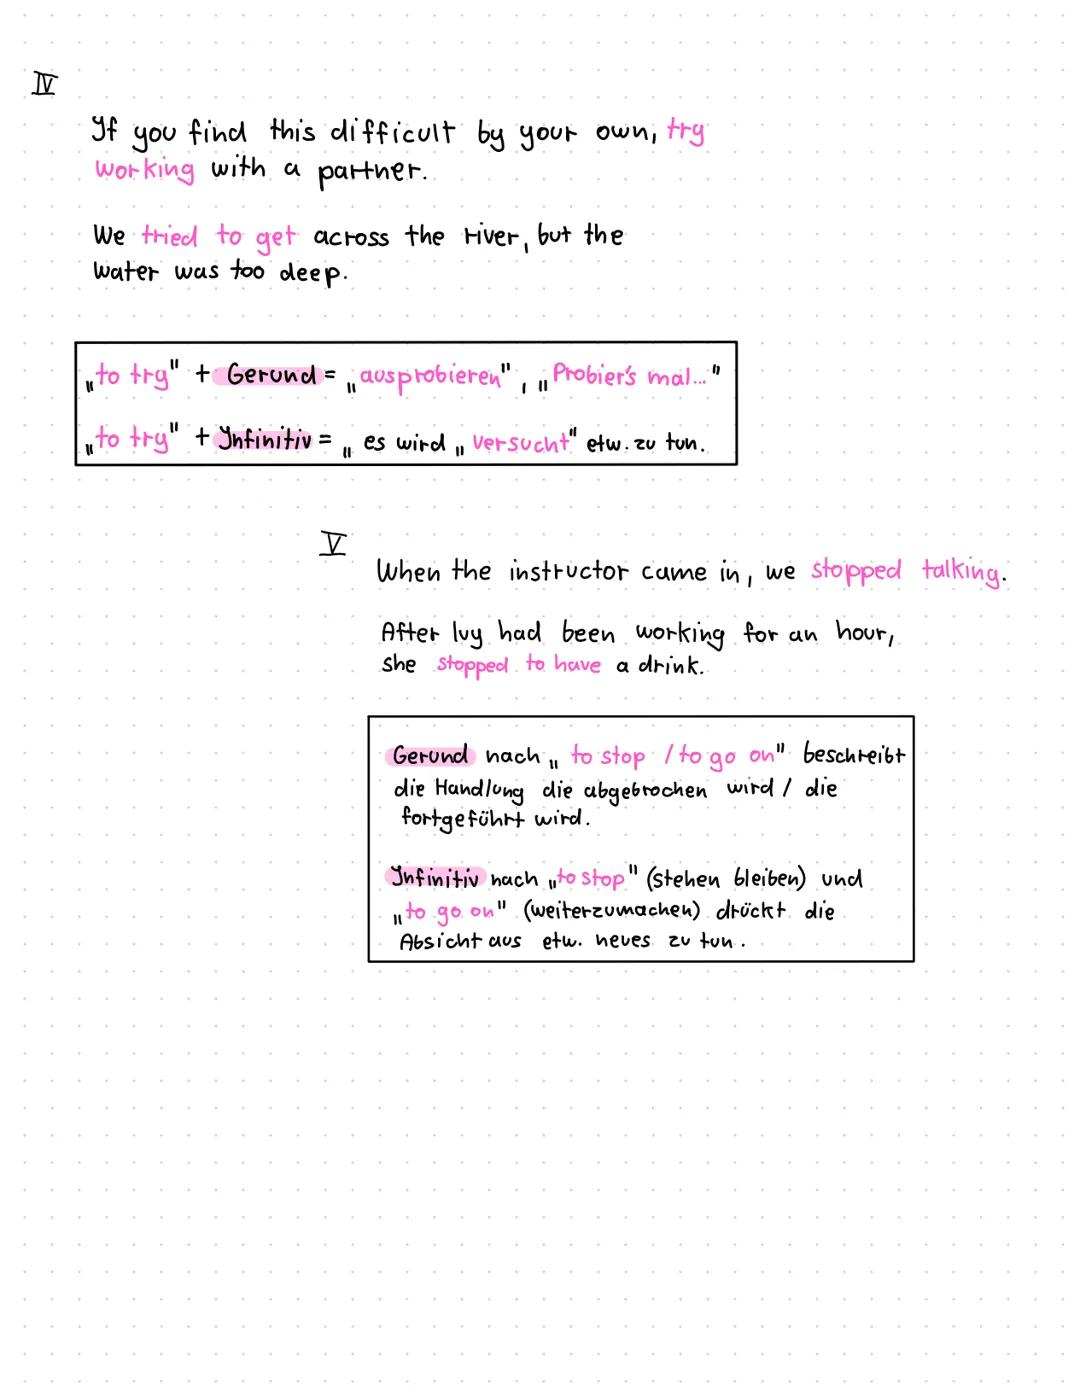 IV
If you find this difficult by your own, try
working with a partner.
We tried to get across the river, but the
water was too deep.
„to try" + Gerund = „ausprobieren", „Probier's mal..."
„to try" + Infinitiv = „ es wird „versucht" etw. zu tun.
V
When the instructor came in, we stopped talking.
After Ivy had been working for an hour,
she stopped to have a drink.
Gerund nach „to stop / to go on" beschreibt
die Handlung die abgebrochen wird / die
fortgeführt wird.
Infinitiv nach „to stop" (stehen bleiben) und
„to go on" (weiterzumachen) drückt die
Absicht aus etw. neues zu tun.